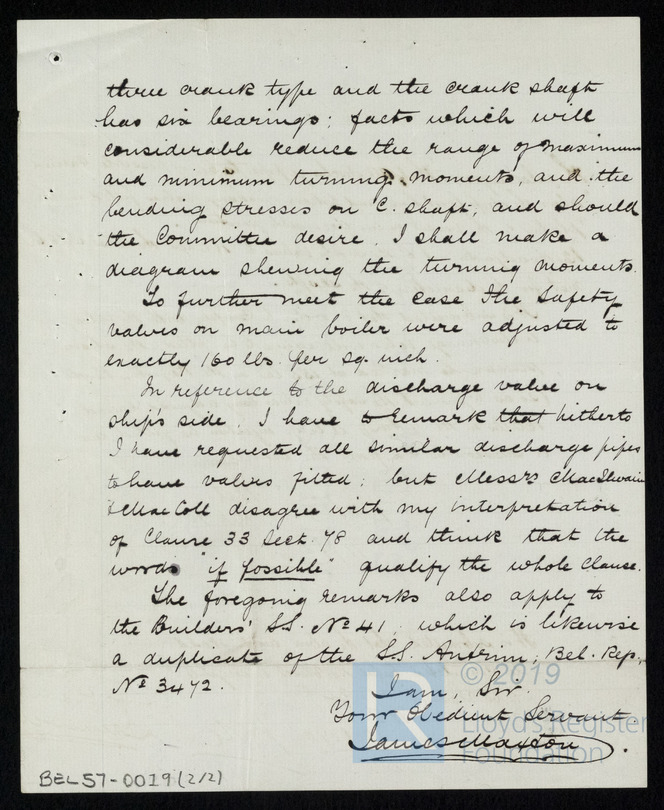 three crank type and the crank shaft
has six bearings; facts which will
considerable reduce the range of maximum
and minimum turning moments, and the
bending stresses on C. shaft, and should
the Committee desire, I shall make a
diagram shewing the turning moments.
To further meet the case The Safety
valves on main boiler were adjusted to
exactly 160 lbs. per sq. inch.
In reference to the discharge valve on
ship's side, I have to remark that hitherto
I have requested all similar discharge pipes
to have valves fitted; but Messrs MacIlwain
& MacColl disagree with my interpretation
of Clause 33 Sect. 78 and think that the
words "if possible" qualify the whole Clause.
The foregoing remarks also apply to
the Builders' S.S. No 41, which is likewise
a duplicate of the S.S. Antrim, Bel. Rep.
No 3472.
I am, Sir
Your Obedient Servant
James Maxton
© 2019
Lloyd's Register
Foundation
BEL57-0019 (2/2)